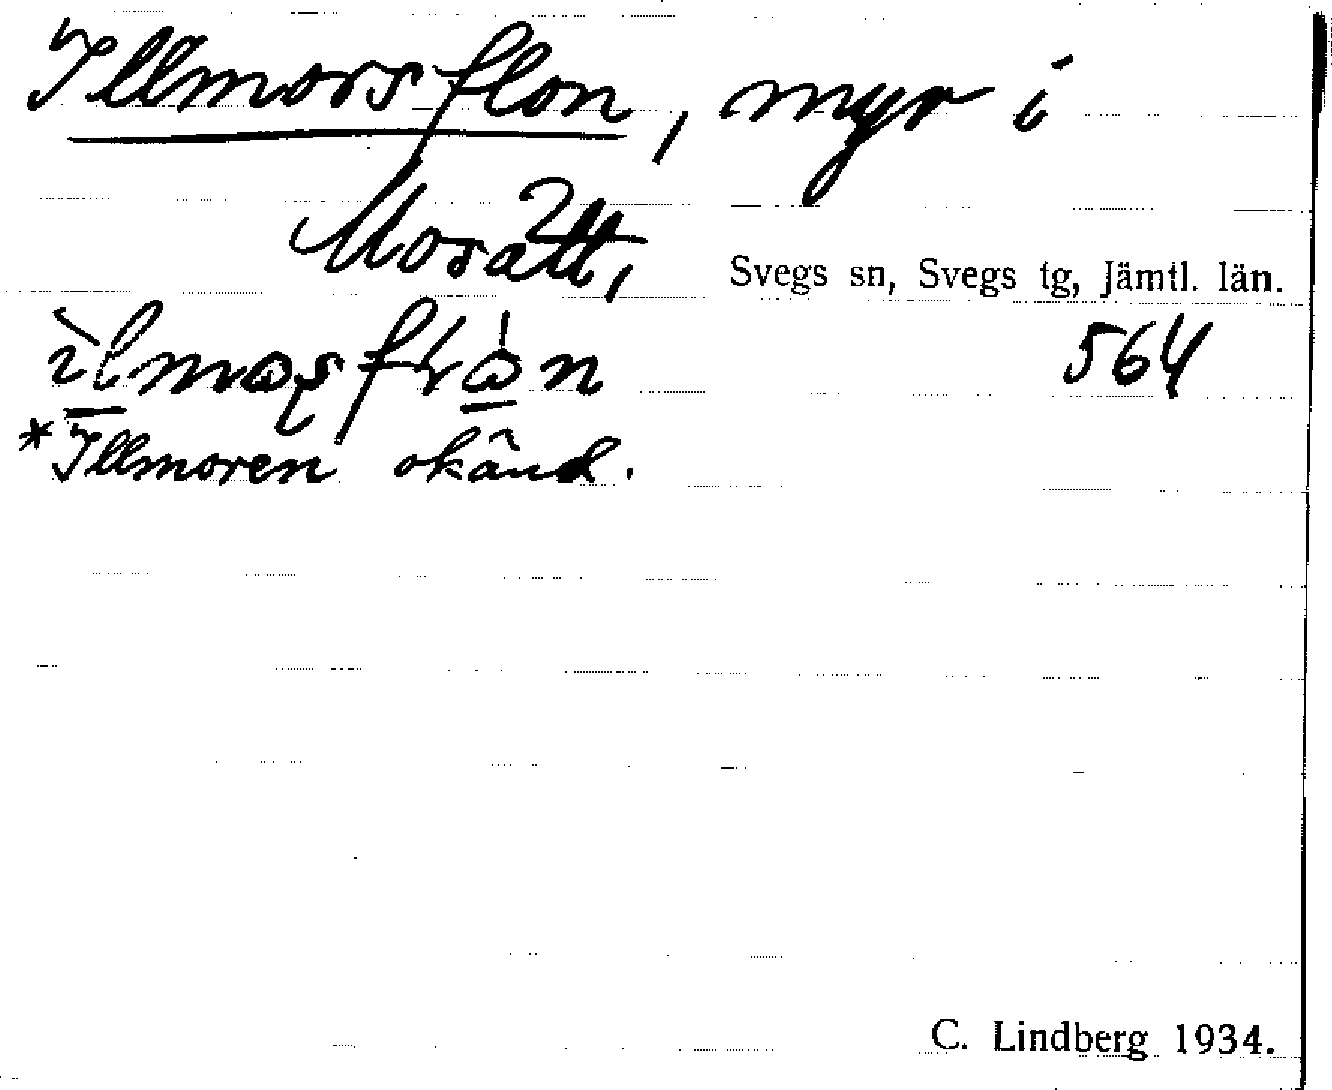 Illmorsflon, myr i
Morätt,
Svegs sn, Svegs tg, Jämtl. län.
564
*Illmoren okänd.
C. Lindberg 1934.